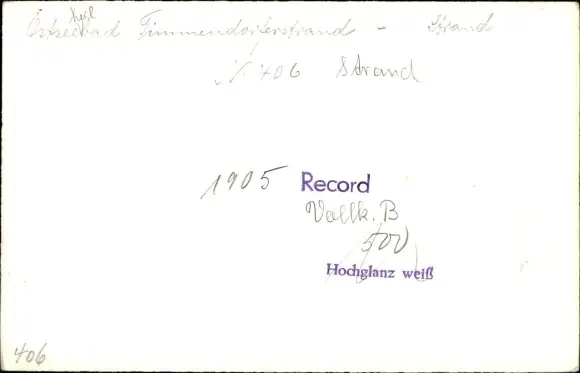 heil
Ostseebad Timmendorferstrand - Strand
N. 406 Strand
1905 Record
Vollk. B
500
Hochglanz weiß
406